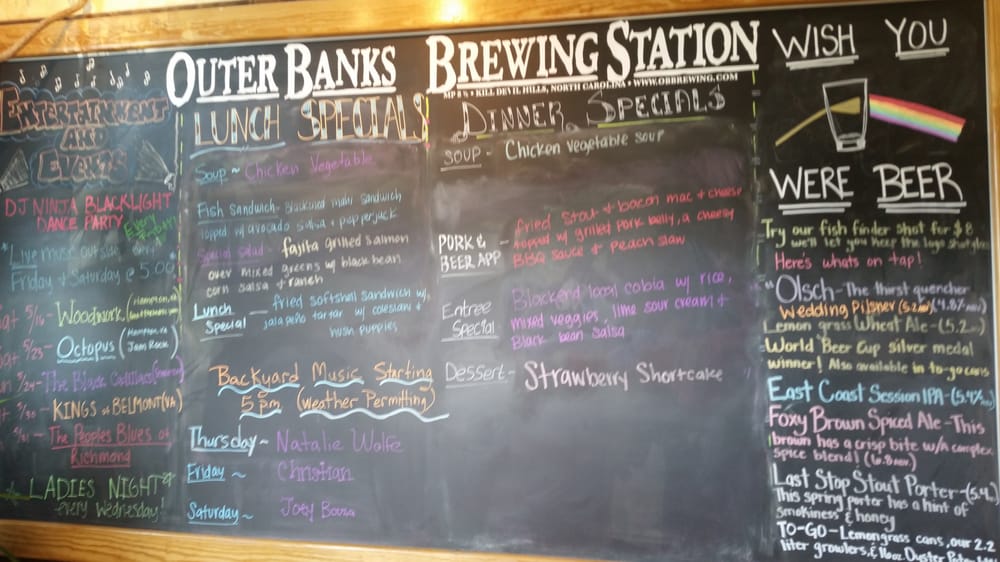 OUTER BANKS BREWING STATION
MP 8½ • KILL DEVIL HILLS, NORTH CAROLINA • WWW.OBBREWING.COM
ENTERTAINMENT
AND
EVENTS
DJ NINJA BLACKLIGHT
DANCE PARTY
Live music outside every
Friday & Saturday @ 5:00
5/16 - Woodwork
5/23 - Octopus (Hampton, VA Jam Rock)
5/24 - The Black Cadillacs
5/30 - KINGS of BELMONT (VA)
5/31 - The Peoples Blues of
Richmond
LADIES NIGHT
every Wednesday!
LUNCH SPECIALS
Soup ~ Chicken Vegetable
Fish Sandwich - Blackened mahi sandwich
topped w/ avocado salsa & pepperjack
Special Salad - fajita grilled salmon
over mixed greens w/ black bean
corn salsa & ranch
Lunch Special - fried softshell sandwich w/
jalapeño tartar w/ coleslaw &
hush puppies
Backyard Music Starting
5 pm (weather Permitting)
Thursday ~ Natalie Wolfe
Friday ~ Christian
Saturday ~ Joey
DINNER SPECIALS
SOUP - Chicken vegetable soup
PORK & BEER APP - fried stout & bacon mac & cheese
topped w/ grilled pork belly, a cherry
BBQ sauce & peach slaw
Entree Special - Blackend local cobia w/ rice,
mixed veggies, lime sour cream &
Black bean salsa
Dessert - Strawberry Shortcake
WISH YOU
WERE BEER
Try our fish finder shot for $8
we'll let you keep the logo shot glass
Here's whats on tap!
Olsch - The thirst quencher (4.8%
Wedding Pilsner (5.2
Lemon grass Wheat Ale - (5.2
World Beer Cup silver medal
winner! Also available in to-go cans
East Coast Session IPA - (5.4%
Foxy Brown Spiced Ale - This
brown has a crisp bite w/ a complex
spice blend! (6.8
Last Stop Stout Porter - (5.4
This spring porter has a hint of
smokiness & honey
TO-GO - Lemongrass cans, our 2.2
liter growlers, & 16oz. Oyster